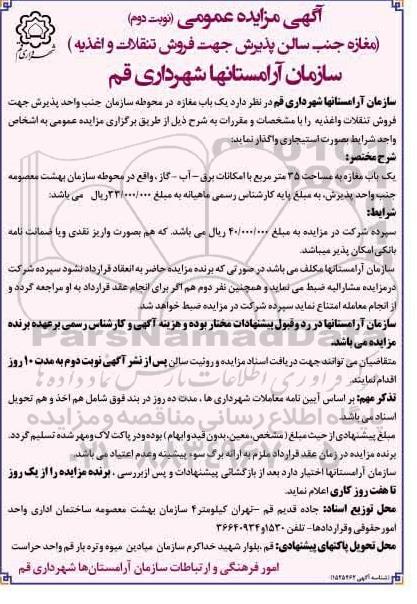 آگهی مزایده عمومی (نوبت دوم)
(مغازه جنب سالن پذیرش جهت فروش تنقلات و اغذیه )
سازمان آرامستانها شهرداری قم
سازمان آرامستانها شهرداری قم در نظر دارد یک باب مغازه در محوطه سازمان جنب واحد پذیرش جهت
فروش تنقلات واغذیه را با مشخصات و مقررات به شرح ذیل از طریق برگزاری مزایده عمومی به اشخاص
واجد شرایط بصورت استیجاری واگذار نماید:
شرح مختصر:
یک باب مغازه به مساحت ۳۵ متر مربع با امکانات برق – آب – گاز ، واقع در محوطه سازمان بهشت معصومه
جنب واحد پذیرش، به مبلغ پایه کارشناس رسمی ماهیانه به مبلغ ۳۳/۰۰۰/۰۰۰ریال می باشد:
شرایط:
سپرده شرکت در مزایده به مبلغ ۴۰/۰۰۰/۰۰۰ ریال می باشد. که هم بصورت واریز نقدی ویا ضمانت نامه
بانکی امکان پذیر میباشد.
سازمان آرامستانها مکلف می باشد در صورتی که برنده مزایده حاضر به انعقاد قرارداد نشود سپرده شرکت
درمزایده مشارالیه ضبط می نماید و همچنین نفر دوم هم اگر برای انجام عقد قرارداد به او مراجعه گردد و
از انجام معامله امتناع نماید سپرده شرکت در مزایده ضبط خواهد شد.
سازمان آرامستانها در رد وقبول پیشنهادات مختار بوده و هزینه آگهی و کارشناس رسمی برعهده برنده
مزایده می باشد.
متقاضیان می توانند جهت دریافت اسناد مزایده و رونیت سالن پس از نشر آگهی نوبت دوم به مدت ۱۰ روز
اقدام نمایند.
تذکر مهم: بر اساس آیین نامه معاملات شهرداری ها ، مدت ده روز در بند فوق شامل هم اخذ و هم تحویل
اسناد می باشد.
مبلغ پیشنهادی از حیث مبلغ ( مشخص ،معین ،بدون قید و ابهام ) بوده ودر پاکت لاک ومهر شده تسلیم گردد.
برنده مزایده در زمان عقد قرارداد ملزم به ارائه برگ سوء پیشینه وعدم اعتیاد می باشد.
سازمان آرامستانها اختیار دارد بعد از بازگشائی پیشنهادات و پس ازبررسی ، برنده مزایده را از یک روز
تا هفت روز کاری اعلام نماید.
محل توزیع اسناد: جاده قدیم قم –تهران کیلومتر۴ سازمان بهشت معصومه ساختمان اداری واحد
امورحقوقی وقراردادها– تلفن ۱۵۳۰و۳۶۶۴۰۹۳۴
محل تحویل پاکتهای پیشنهادی: قم ،بلوار شهید خداکرم سازمان میادین میوه وتره بار قم واحد حراست
امور فرهنگی و ارتباطات سازمان آرامستان‌ها شهرداری قم
(شناسه آگهی ۱۵۲۵۴۶۲)